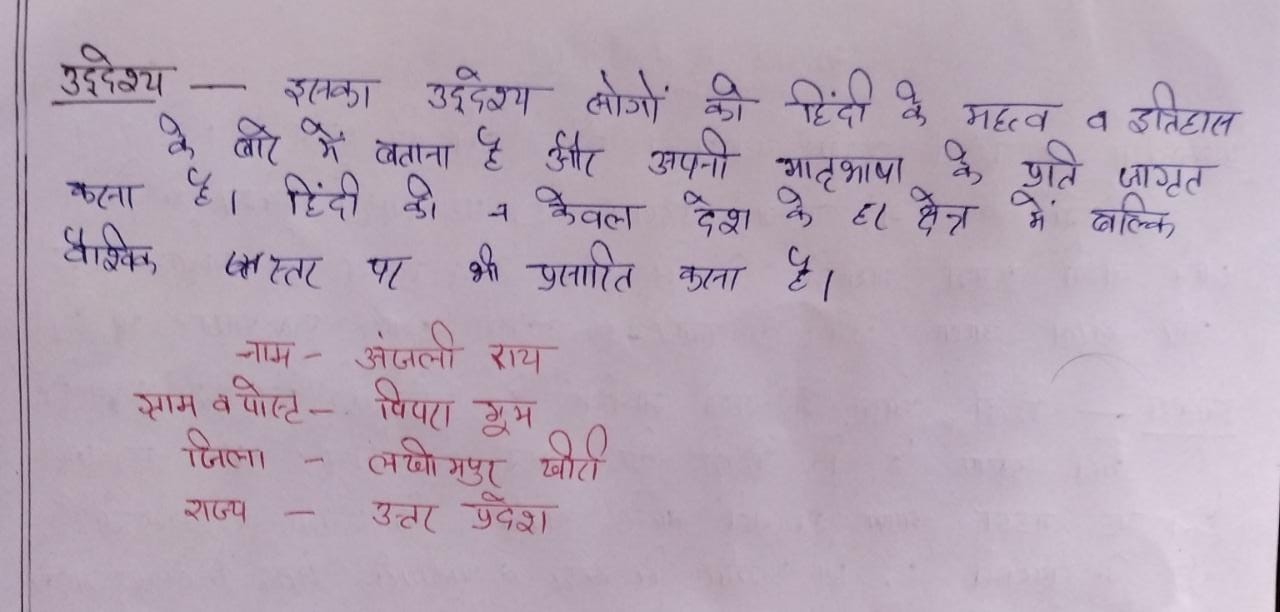 उद्देश्य — इसका उद्देश्य लोगों को हिंदी के महत्व व इतिहास
के बारे में बताना है और अपनी मातृभाषा के प्रति जागृत
करना है। हिंदी को न केवल देश के हर क्षेत्र में बल्कि
वैश्विक स्तर पर भी प्रसारित करना है।
नाम - अंजली राय
ग्राम व पोस्ट - पिपरा गूम
जिला - लखीमपुर खीरी
राज्य - उत्तर प्रदेश